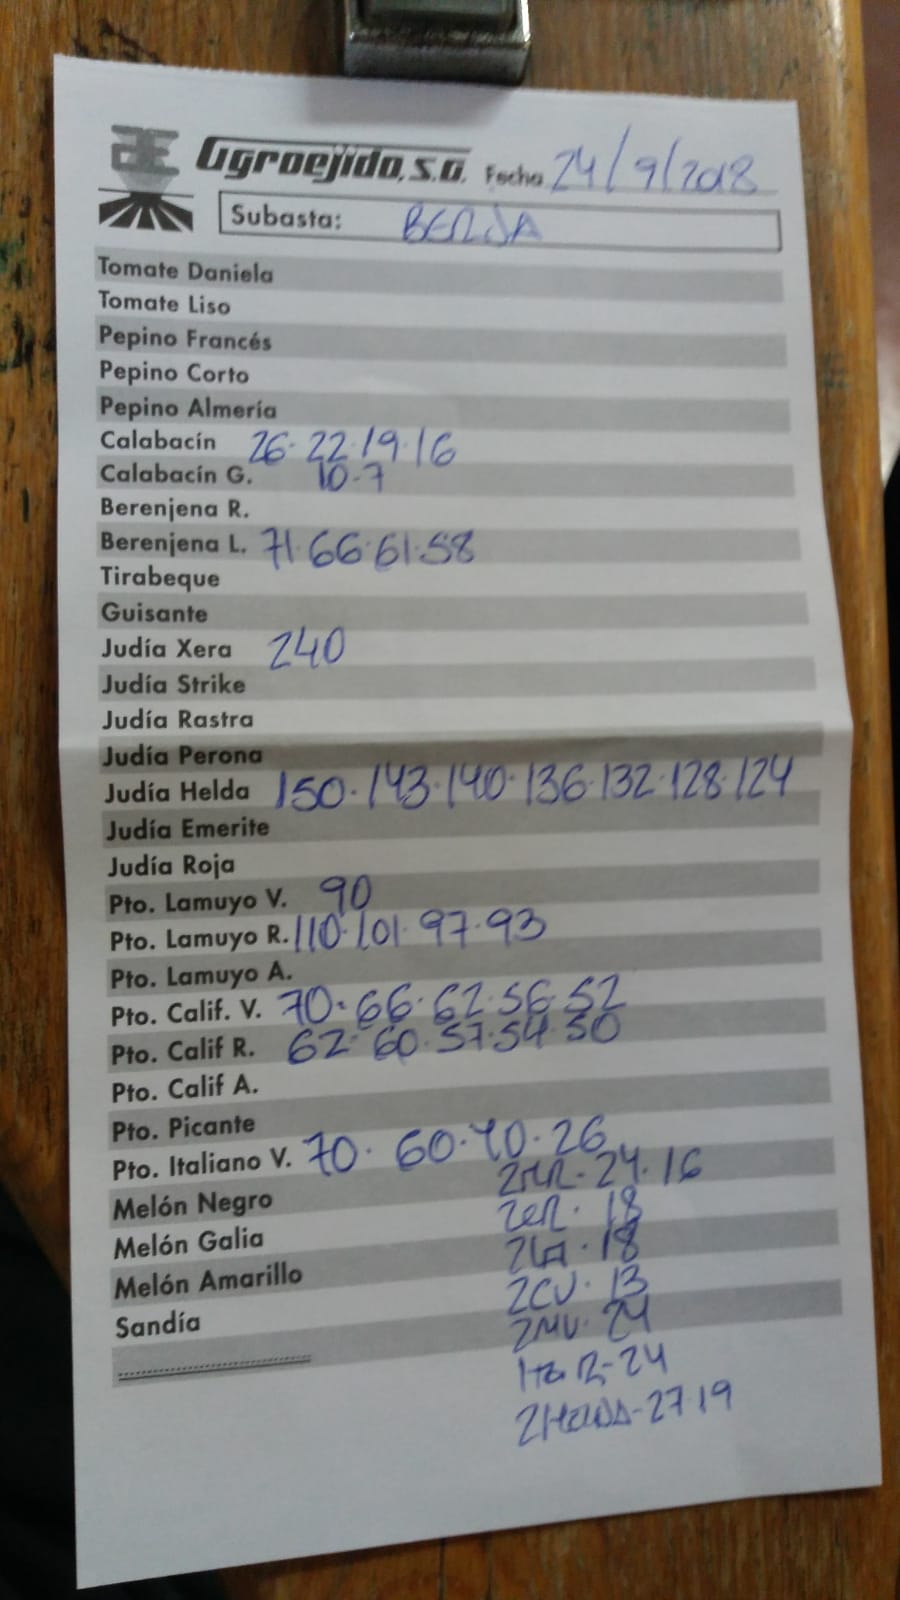 Agroejido, s.a. Fecha 24/9/2018
Subasta: BERJA
Tomate Daniela
Tomate Liso
Pepino Francés
Pepino Corto
Pepino Almería
Calabacín 26·22·19·16
Calabacín G. 10·7
Berenjena R.
Berenjena L. 71·66·61·58
Tirabeque
Guisante
Judía Xera 240
Judía Strike
Judía Rastra
Judía Perona
Judía Helda 150·143·140·136·132·128·124
Judía Emerite
Judía Roja
Pto. Lamuyo V. 90
Pto. Lamuyo R. 110·101·97·93
Pto. Lamuyo A.
Pto. Calif. V. 70·66·62·56·52
Pto. Calif R. 62·60·57·54·50
Pto. Calif A.
Pto. Picante
Pto. Italiano V. 70·60·40·26
Melón Negro 24·16
Melón Galia 18
Melón Amarillo 2CV·13
Sandía 2MV·24
24
27·19